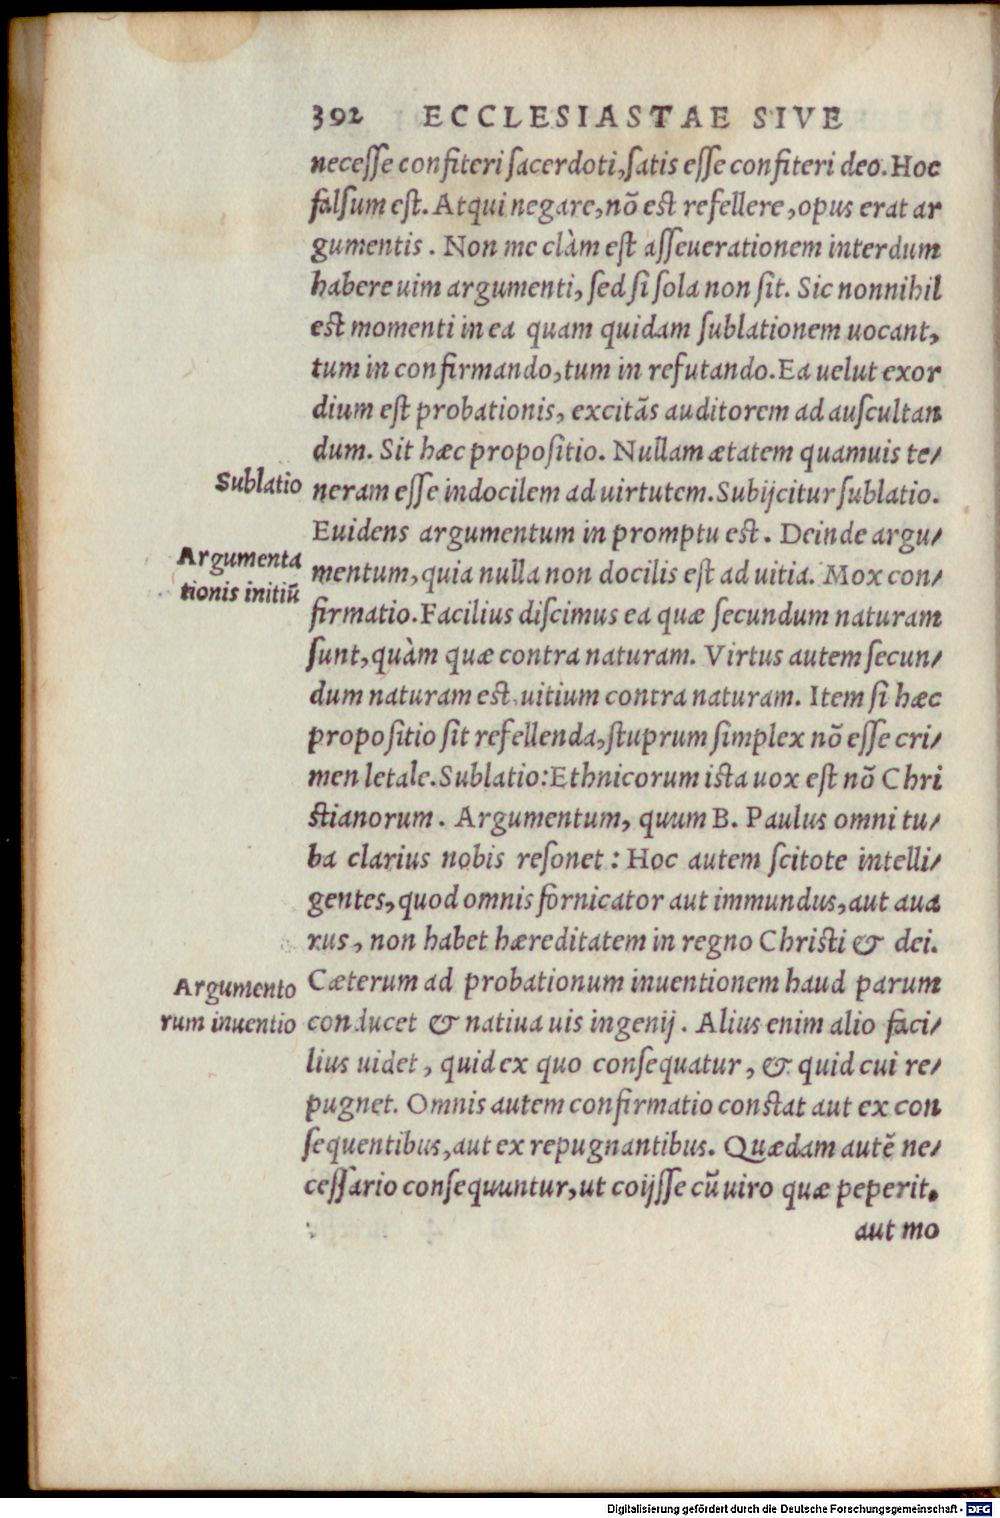 392 ECCLESIASTAE SIVE
necesse confiteri sacerdoti, satis esse confiteri deo. Hoc
falsum est. Atqui negare, nõ est refellere, opus erat ar
gumentis. Non me clàm est asseuerationem interdum
habere uim argumenti, sed si sola non sit. Sic nonnihil
est momenti in ea quam quidam sublationem uocant,
tum in confirmando, tum in refutando. Ea uelut exor
dium est probationis, excitãs auditorem ad auscultan
dum. Sit hæc propositio. Nullam ætatem quamuis te/
Sublatio
neram esse indocilem ad uirtutem. Subijcitur sublatio.
Euidens argumentum in promptu est. Deinde argu/
Argumenta
tionis initiũ
mentum, quia nulla non docilis est ad uitia. Mox con/
firmatio. Facilius discimus ea quæ secundum naturam
sunt, quàm quæ contra naturam. Virtus autem secun/
dum naturam est, uitium contra naturam. Item si hæc
propositio sit refellenda, stuprum simplex nõ esse cri/
men letale. Sublatio: Ethnicorum ista uox est nõ Chri
stianorum. Argumentum, quum B. Paulus omni tu/
ba clarius nobis resonet: Hoc autem scitote intelli/
gentes, quod omnis fornicator aut immundus, aut aua
rus, non habet hæreditatem in regno Christi & dei.
Argumento
rum inuentio
Cæterum ad probationum inuentionem haud parum
conducet & natiua uis ingenij. Alius enim alio faci/
lius uidet, quid ex quo consequatur, & quid cui re/
pugnet. Omnis autem confirmatio constat aut ex con
sequentibus, aut ex repugnantibus. Quædam autẽ ne/
cessario consequuntur, ut coijsse cũ uiro quæ peperit.
aut mo
Digitalisierung gefördert durch die Deutsche Forschungsgemeinschaft - DFG